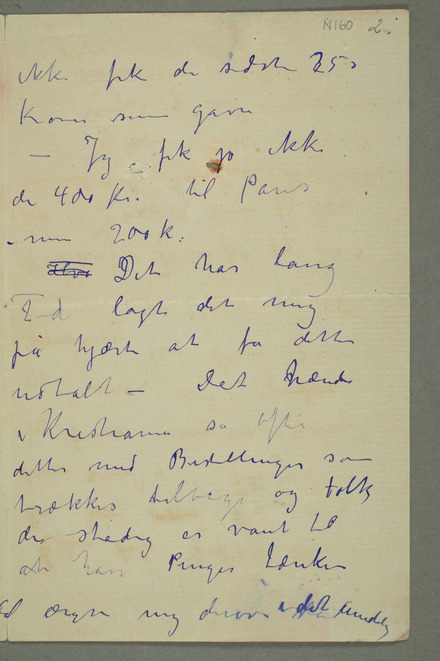 N160 2.
ikke fik de sidste 250
Kroner som gave
– Jeg fik jo ikke
de 400 Kr. til Paris
– men 200 k.
Det har lang
Tid lagt det mig
på hjærte at få dette
udtalt – Det hænder
i Kristiania så ofte
dette med Bestillinger som
trækkes tilbage og folk
der stadig er vant til
at have Penge tænker
ærgre mig derover i det